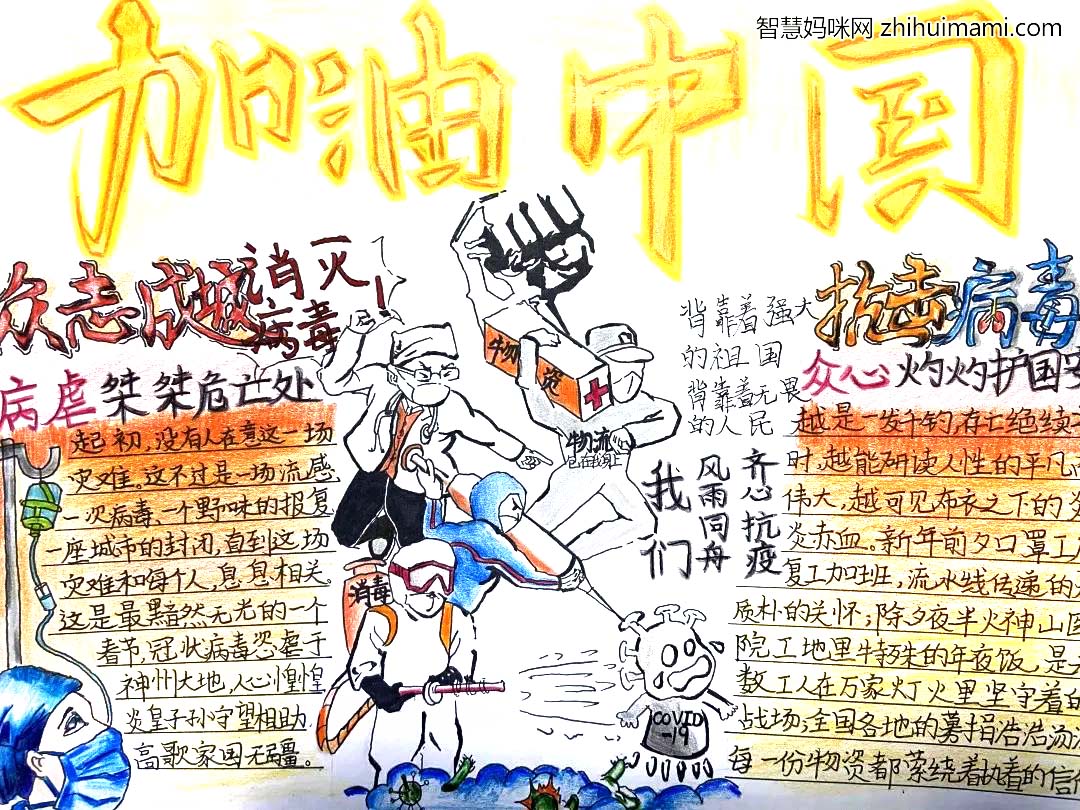 智慧妈咪网 zhihuimami.com
加油中国
众志成城
消灭
病毒!
抗击病毒
病虐桀桀危亡处
众心灼灼护国安
起初,没有人在意这一场
灾难。这不过是一场流感
一次病毒、一个野味的报复
一座城市的封闭,直到这场
灾难和每个人,息息相关。
这是最黯然无光的一个
春节,冠状病毒恣虐于
神州大地,人心惶惶
炎皇子孙守望相助.
高歌家国无疆。
物资
物流
消毒
背靠着强大
的祖国
背靠着无畏
的人民
我们
风雨同舟
齐心抗疫
COVID
-19
越是一发千钧,存亡绝续
时,越能研读人性的平凡
伟大,越可见布衣之下的
炎赤血。新年前夕口罩工
复工加班,流水线传递的
质朴的关怀;除夕夜半火神山医
院工地里特殊的年夜饭,是
数工人在万家灯火里坚守着的
战场;全国各地的募捐浩浩汤
每一份物资都萦绕着执着的信